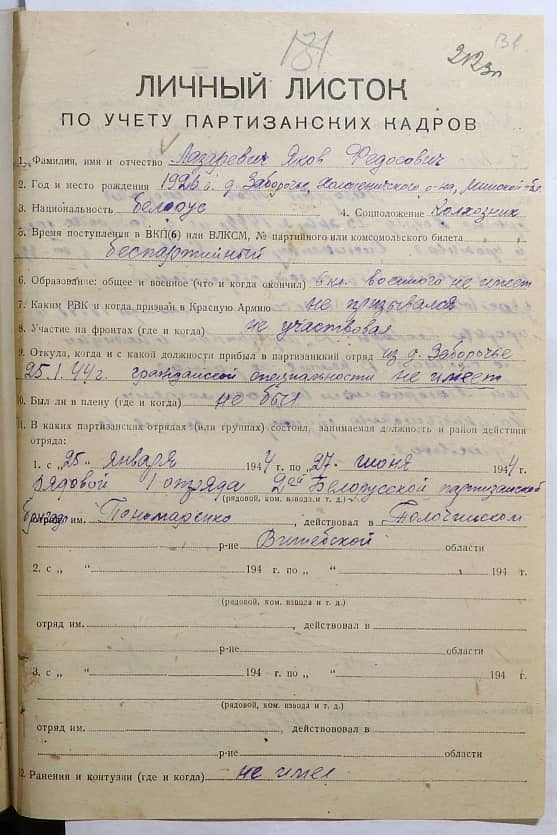 131
ЛИЧНЫЙ ЛИСТОК
ПО УЧЕТУ ПАРТИЗАНСКИХ КАДРОВ
1. Фамилия, имя и отчество Лазаревич Яков Федосович
2. Год и место рождения 1926 г. д. Заборочье, Холопеничского р-на, Минской обл
3. Национальность белорус 4. Соцположение Колхозник
5. Время поступления в ВКП(б) или ВЛКСМ, № партийного или комсомольского билета
беспартийный
6. Образование: общее и военное (что и когда окончил) 6 кл. военного не имеет
7. Каким РВК и когда призван в Красную Армию не призывался
8. Участие на фронтах (где и когда) не участвовал
9. Откуда, когда и с какой должности прибыл в партизанкий отряд из д. Заборочье
25.1.44 г. гражданской специальности не имеет
10. Был ли в плену (где и когда) не был
11. В каких партизанских отрядах (или группах) состоял, занимаемая должность и район действия
отряда:
1. с „25„ января 1944 г. по „27„ июня 1944 г.
рядовой 1 отряда 2ой Белорусской партизанской
(рядовой, ком. взвода и т. д.)
бригады им. Пономаренко, действовал в Толочинском
р-не Витебской области
2. с „ “ 194 г. по „ “ 194 г.
(рядовой, ком. взвода и т. д.)
отряд им. , действовал в
р-не области
3. с „ “ 194 г. по „ “ 194 г.
(рядовой, ком. взвода и т. д.)
отряд им. , действововал в
р-не области
12. Ранения и контузии (где и когда) не имел